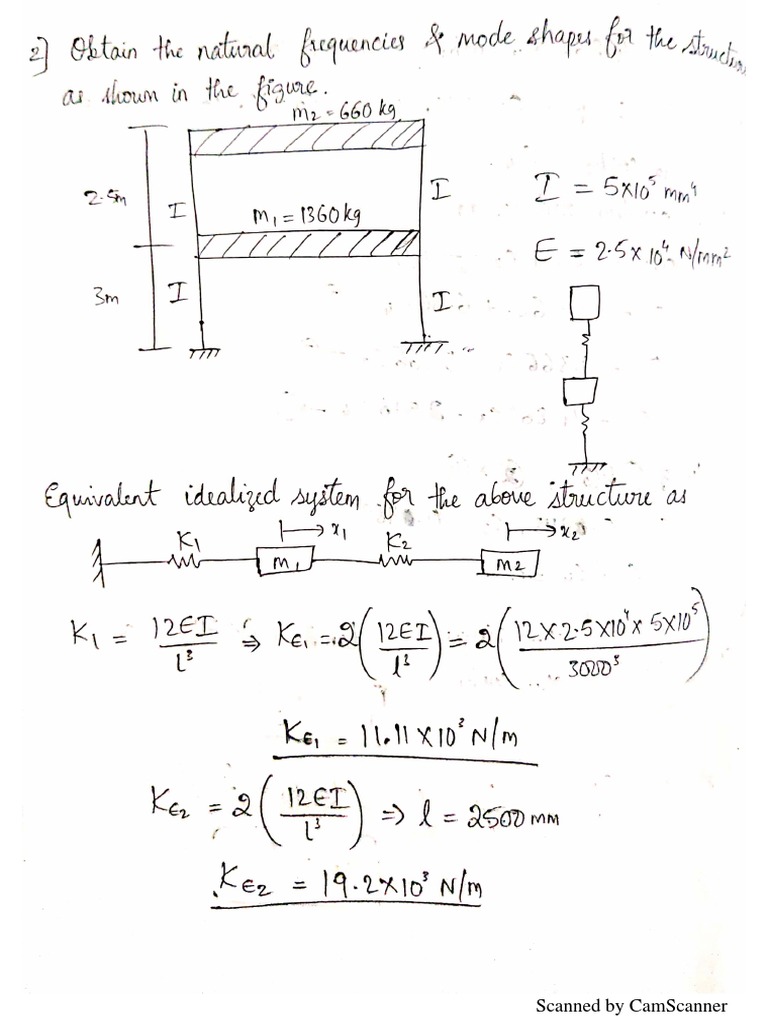 2] Obtain the natural frequencies & mode shapes for the structure
as shown in the figure.
m2 = 660 kg
2.5m
I
I
I = 5×10⁵ mm⁴
m1 = 1360 kg
E = 2.5 × 10⁴ N/mm²
3m
I
I
Equivalent idealized system for the above structure as
K1
x1
K2
x2
m1
m2
K1 = 12EI/l³ ⇒ KE1 = 2(12EI/l³) = 2(12 × 2.5×10⁴ × 5×10⁵/3000³)
KE1 = 11.11 × 10³ N/m
KE2 = 2(12EI/l³) ⇒ l = 2500 mm
KE2 = 19.2×10³ N/m
Scanned by CamScanner